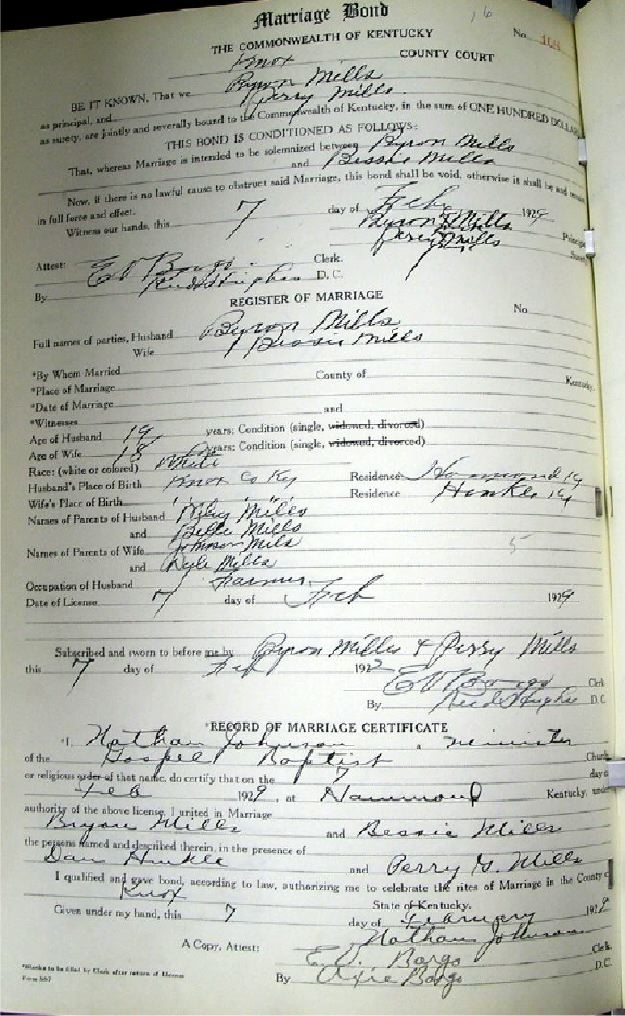 Marriage Bond
16
THE COMMONWEALTH OF KENTUCKY
No.
Knox COUNTY COURT
BE IT KNOWN, That we Byron Mills
as principal, and Perry Mills
as surety, are jointly and severally bound to the Commonwealth of Kentucky, in the sum of ONE HUNDRED DOLLARS
THIS BOND IS CONDITIONED AS FOLLOWS:
That, whereas Marriage is intended to be solemnized between Byron Mills
and Bessie Mills
Now, if there is no lawful cause to obstruct said Marriage, this bond shall be void, otherwise it shall be and remain
in full force and effect.
Witness our hands, this 7 day of Feb 1929
Byron Mills Principal
Perry Mills Surety
Attest: Clerk.
By D. C.
REGISTER OF MARRIAGE
No.
Full names of parties, Husband Byron Mills
Wife Bessie Mills
*By Whom Married
*Place of Marriage County of Kentucky.
*Date of Marriage
*Witnesses and
Age of Husband 19 years; Condition (single, widowed, divorced)
Age of Wife 18 years; Condition (single, widowed, divorced)
Race: (white or colored) White
Husband's Place of Birth Knox Co Ky Residence Hammond Ky
Wife's Place of Birth " " " Residence Hinkle Ky
Names of Parents of Husband Mills
and Mills
Names of Parents of Wife Johnson Mills
and Mills
5
Occupation of Husband Farmer
Date of License 7 day of Feb 1929
Subscribed and sworn to before me by Byron Mills & Perry Mills
this 7 day of Feb 192
Clerk
By D.C.
*RECORD OF MARRIAGE CERTIFICATE
*I, Nathan Johnson, minister
of the Gospel Baptist Church
or religious order of that name, do certify that on the 7 day of
Feb 1929, at Hammond Kentucky, under
authority of the above license, I united in Marriage
Bryon Mills and Bessie Mills
the persons named and described therein, in the presence of
Dan Hinkle and Perry G. Mills
I qualified and gave bond, according to law, authorizing me to celebrate the rites of Marriage in the County of
Knox State of Kentucky.
Given under my hand, this 7 day of February 1929
Nathan Johnson
A Copy, Attest: E. V. Bargo Clerk.
By Bargo D.C.
*Blanks to be filled by Clerk after return of license
Form 557